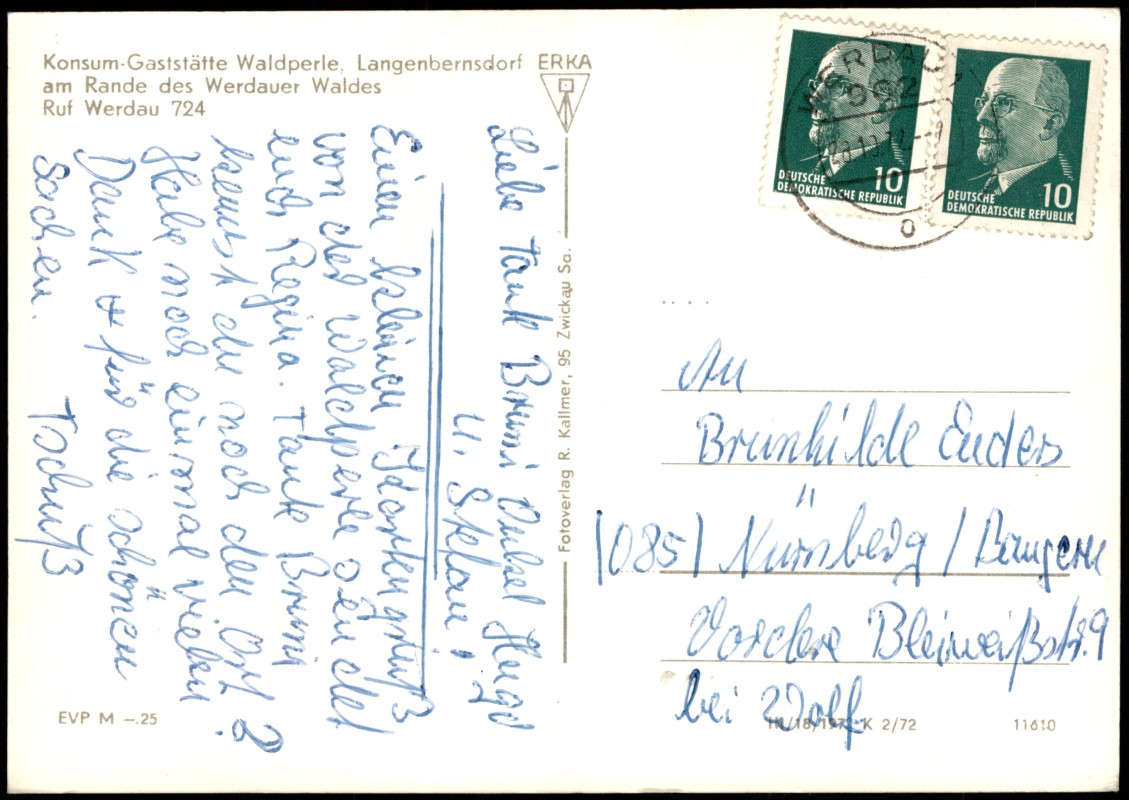 Konsum-Gaststätte Waldperle, Langenbernsdorf
am Rande des Werdauer Waldes
Ruf Werdau 724
ERKA
Liebe Tante Brumi Onkel Hugo
u. Stefan!
Einen kleinen Kartengruß
von der Waldperle sendet
euch Regina. Tante Brumi
kennst du noch den Ort?
Habe noch einmal vielen
Dank für die schönen
Sachen.
Tschüß
Fotoverlag R. Kallmer, 95 Zwickau Sa.
EVP M –.25
WERDAU
962
DEUTSCHE
DEMOKRATISCHE REPUBLIK
10
DEUTSCHE
DEMOKRATISCHE REPUBLIK
10
An
Brunhilde Enders
(085) Nürnberg / Bayern
Vordere Bleiweißstr. 9
bei Wolf
III/18/197 K 2/72
11610